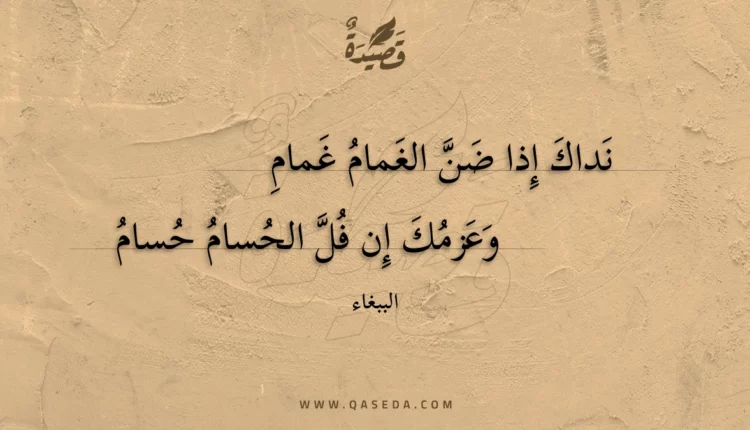 قَصِيْدَةٌ
نَداكَ إِذا ضَنَّ الغَمامُ غَمامِ
وَعَزمُكَ إِن فُلَّ الحُسامُ حُسامُ
الببغاء
WWW.QASEDA.COM